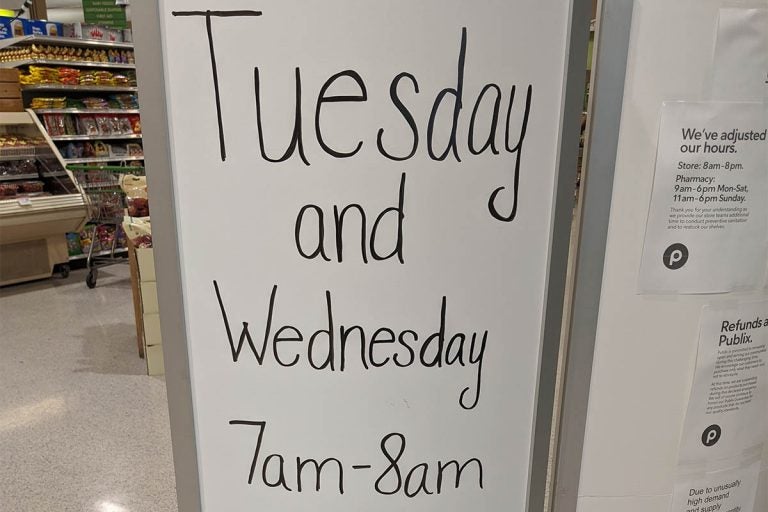 Tuesday
and
Wednesday
7am-8am
We've adjusted
our hours.
Store: 8am-8pm.
Pharmacy:
9am-6pm Mon-Sat,
11am-6pm Sunday.
Thank you for your understanding as
we provide our store teams additional
time to conduct preventive sanitation
and to restock our shelves.
p
Refunds a
Publix.
p
Due to unusually
high demand
and supply